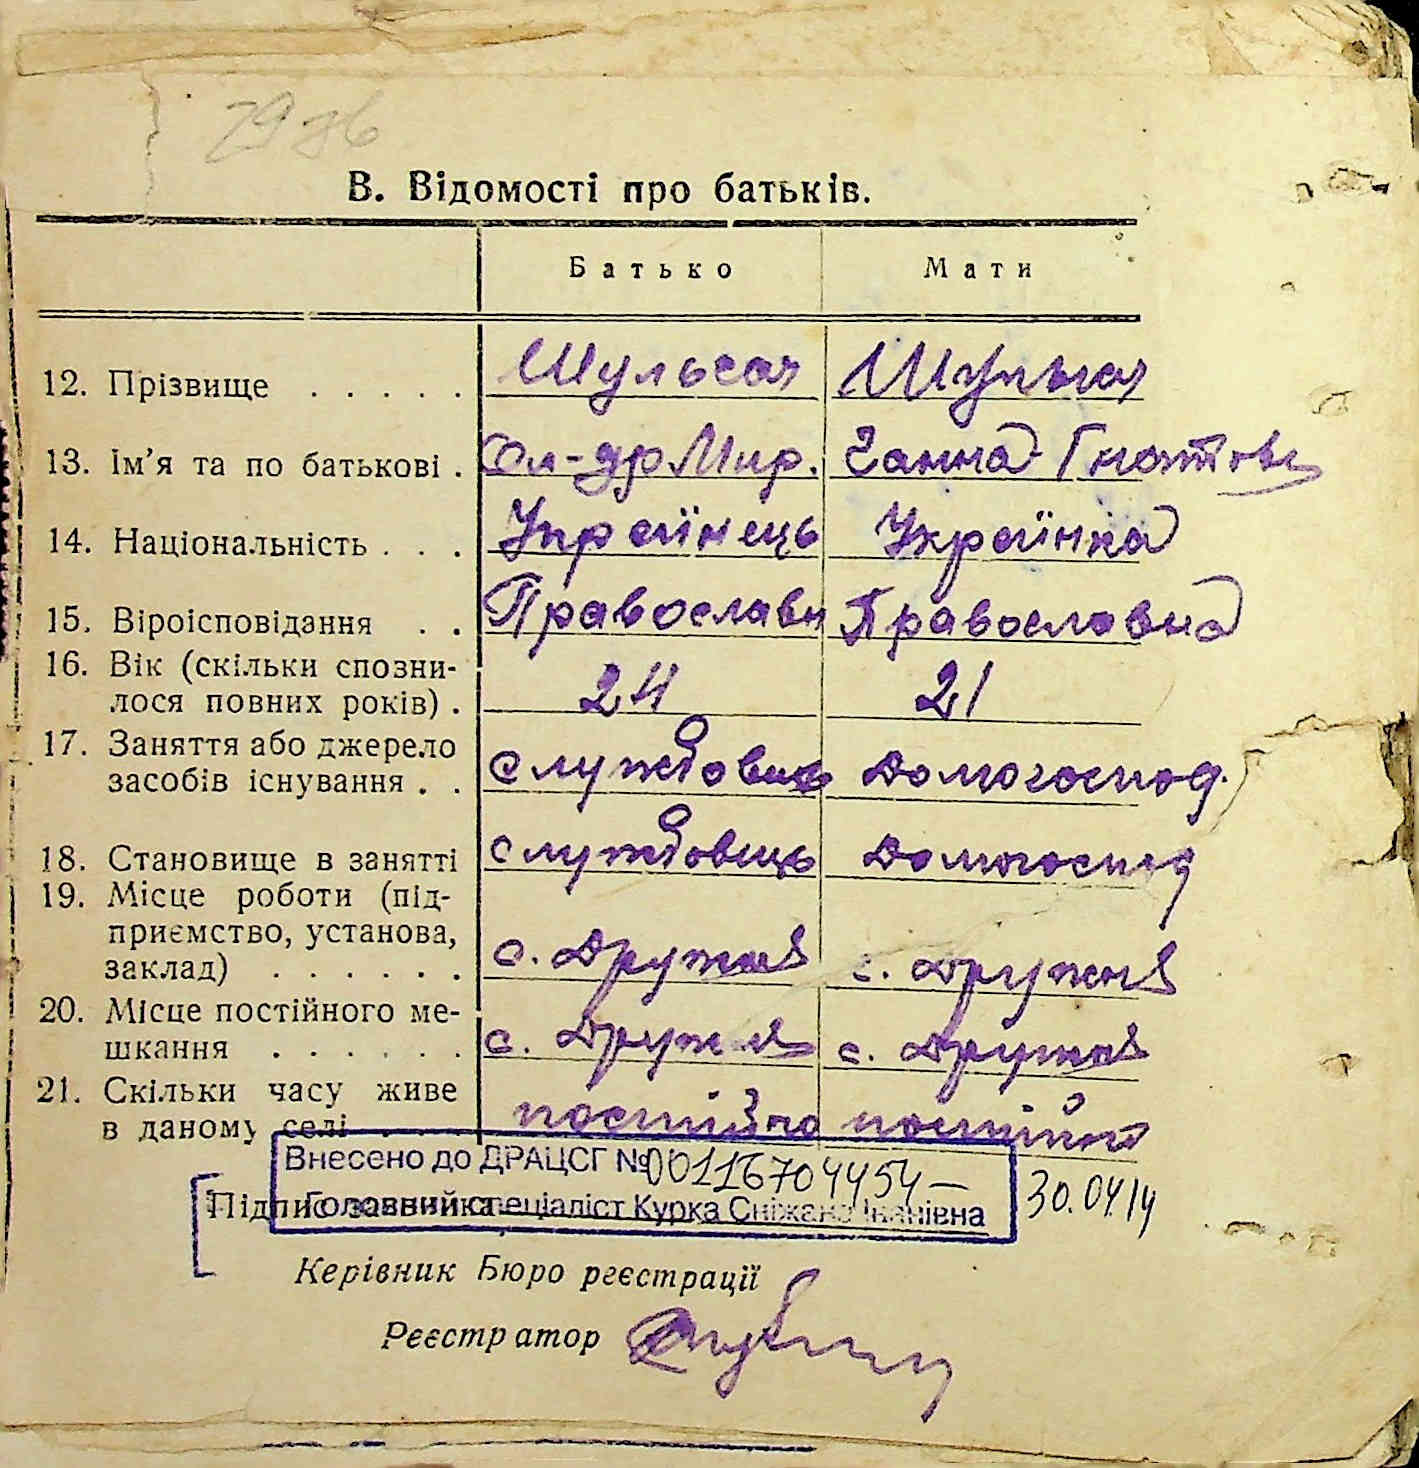 В. Відомості про батьків.
Батько Мати
12. Прізвище . . . . . Шульгач Шульгач
13. Ім'я та по батькові . Ол-др Мир. Ганна Гнатовн
14. Національність . . . Українець Українка
15. Віроісповідання . . Православн Православна
16. Вік (скільки сповни-
лося повних років) . 24 21
17. Заняття або джерело
засобів існування . . службовець Домогоспод.
18. Становище в занятті службовець Домогоспод
19. Місце роботи (під-
приємство, установа,
заклад) . . . . . . с. Дружня с. Дружня
20. Місце постійного ме-
шкання . . . . . . с. Дружня с. Дружня
21. Скільки часу живе
в даному селі . . . постійно постійно
Внесено до ДРАЦСГ № 00116704454
Підпис заявника
Головний спеціаліст Курка Сніжана Іванівна 30.04.14
Керівник Бюро реєстрації
Реєстратор